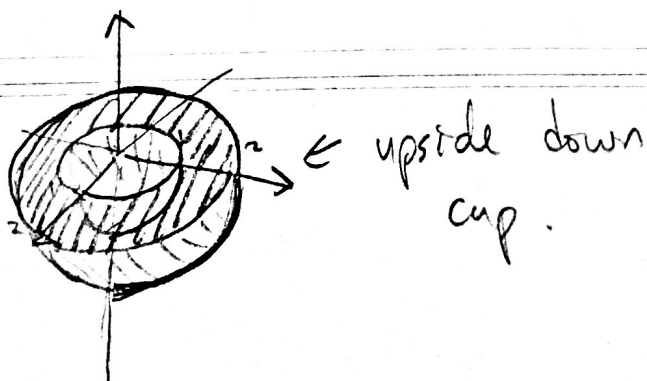 2
← upside down
cup.
2